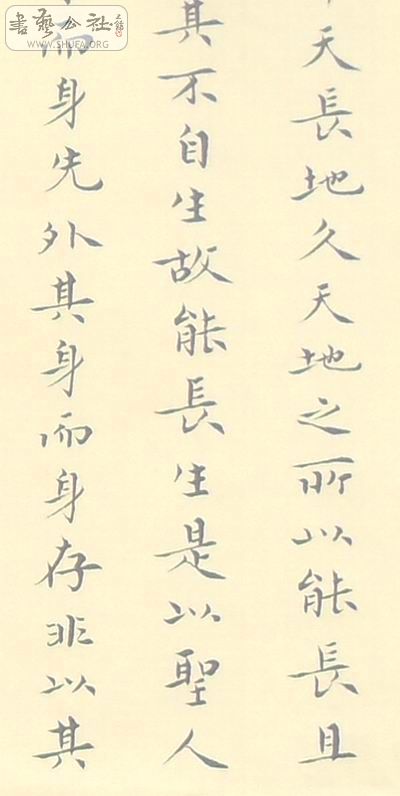 天長地久天地之所以能長且
其不自生故能長生是以聖人
而身先外其身而身存非以其
書藝公社
WWW.SHUFA.ORG